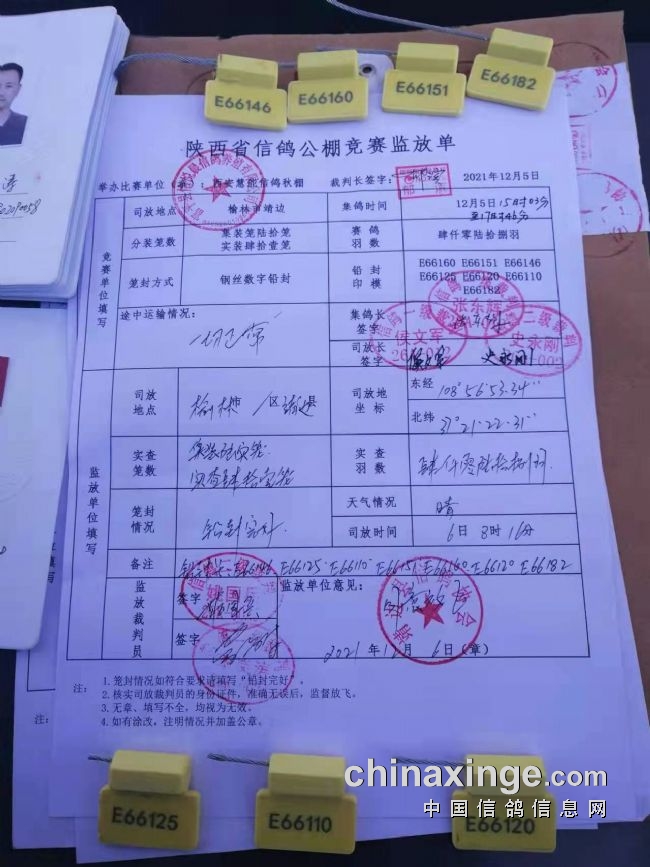 E66146
E66160
E66151
E66182
陕西省信鸽公棚竞赛监放单
举办比赛单位（章）：西安慧能信鸽秋棚 裁判长签字： 2021年12月5日
竞赛单位填写
司放地点 榆林市靖边 集鸽时间 12月5日15时03分
至17时46分
分装笼数 集装笼陆拾笼
实装肆拾壹笼
赛鸽羽数 肆仟零陆拾捌羽
笼封方式 钢丝数字铅封 铅封印模 E66160 E66151 E66146
E66125 E66120 E66110
E66182
途中运输情况： 一切正常
集鸽长签字 张东辉
司放长签字 侯文军 史永刚
监放单位填写
司放地点 榆林市 司放地坐标 东经 108°56′53.34″
北纬 37°21′22.31″
实查笼数
实查羽数 肆仟零陆拾捌羽
笼封情况 铅封完好 天气情况 晴
司放时间 6日8时16分
备注 E66146 E66125 E66110 E66151 E66160 E66120 E66182
监放裁判员 签字
签字
监放单位意见：
2021年12月6日（章）
注： 1.笼封情况如符合要求请填写“铅封完好”。
2.核实司放裁判员的身份证件，准确无误后，监督放飞。
3.无章、填写不全，均视为无效。
4.如有涂改，注明情况并加盖公章。
E66125
E66110
E66120
chinaxinge.com
中国信鸽信息网